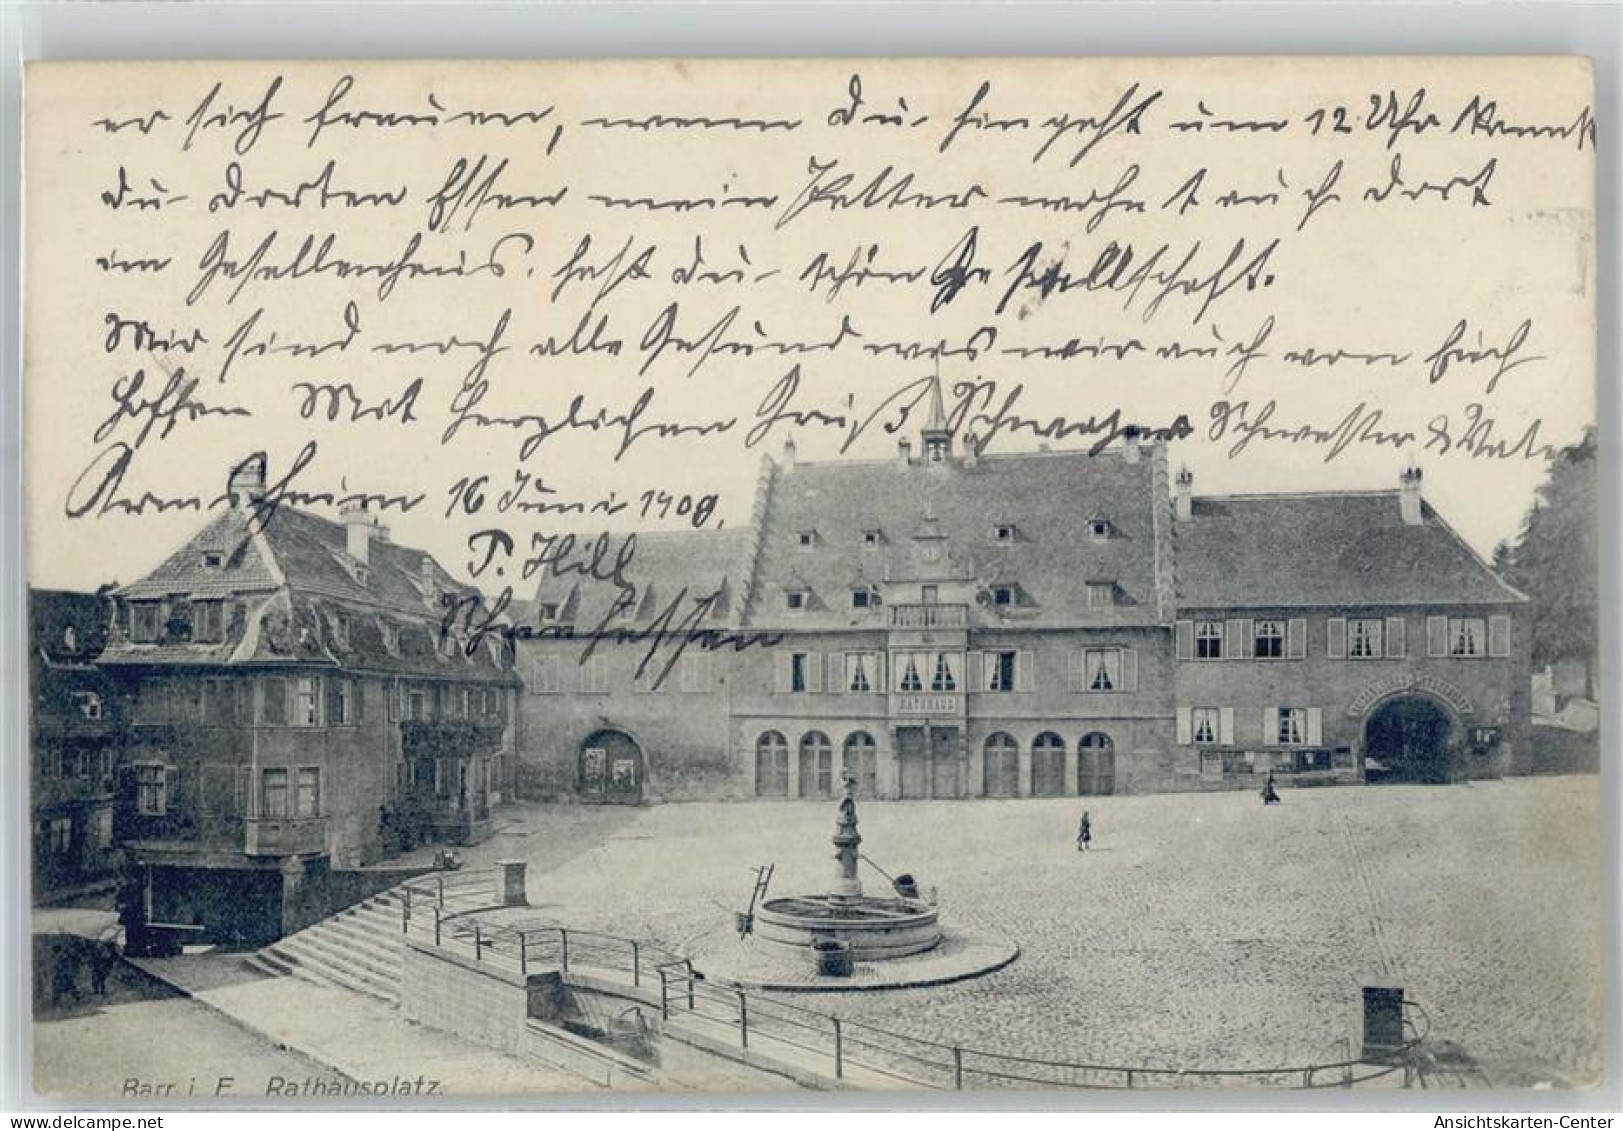 er sich freuen, wenn Du hingehst um 12 Uhr kannst
Du dorten Essen mein Vetter wohnt auch dort
im Gesellenhaus. hast Du schön Gesellschaft.
Mir sind noch alle Gesund was wir auch von Euch
hoffen Mit herzlichen Gruß Schwager Schwester & Vater
16 Juni 1909.
P. Hill
RATHAUS
Barr i. E. Rathausplatz.
Ansichtskarten-Center